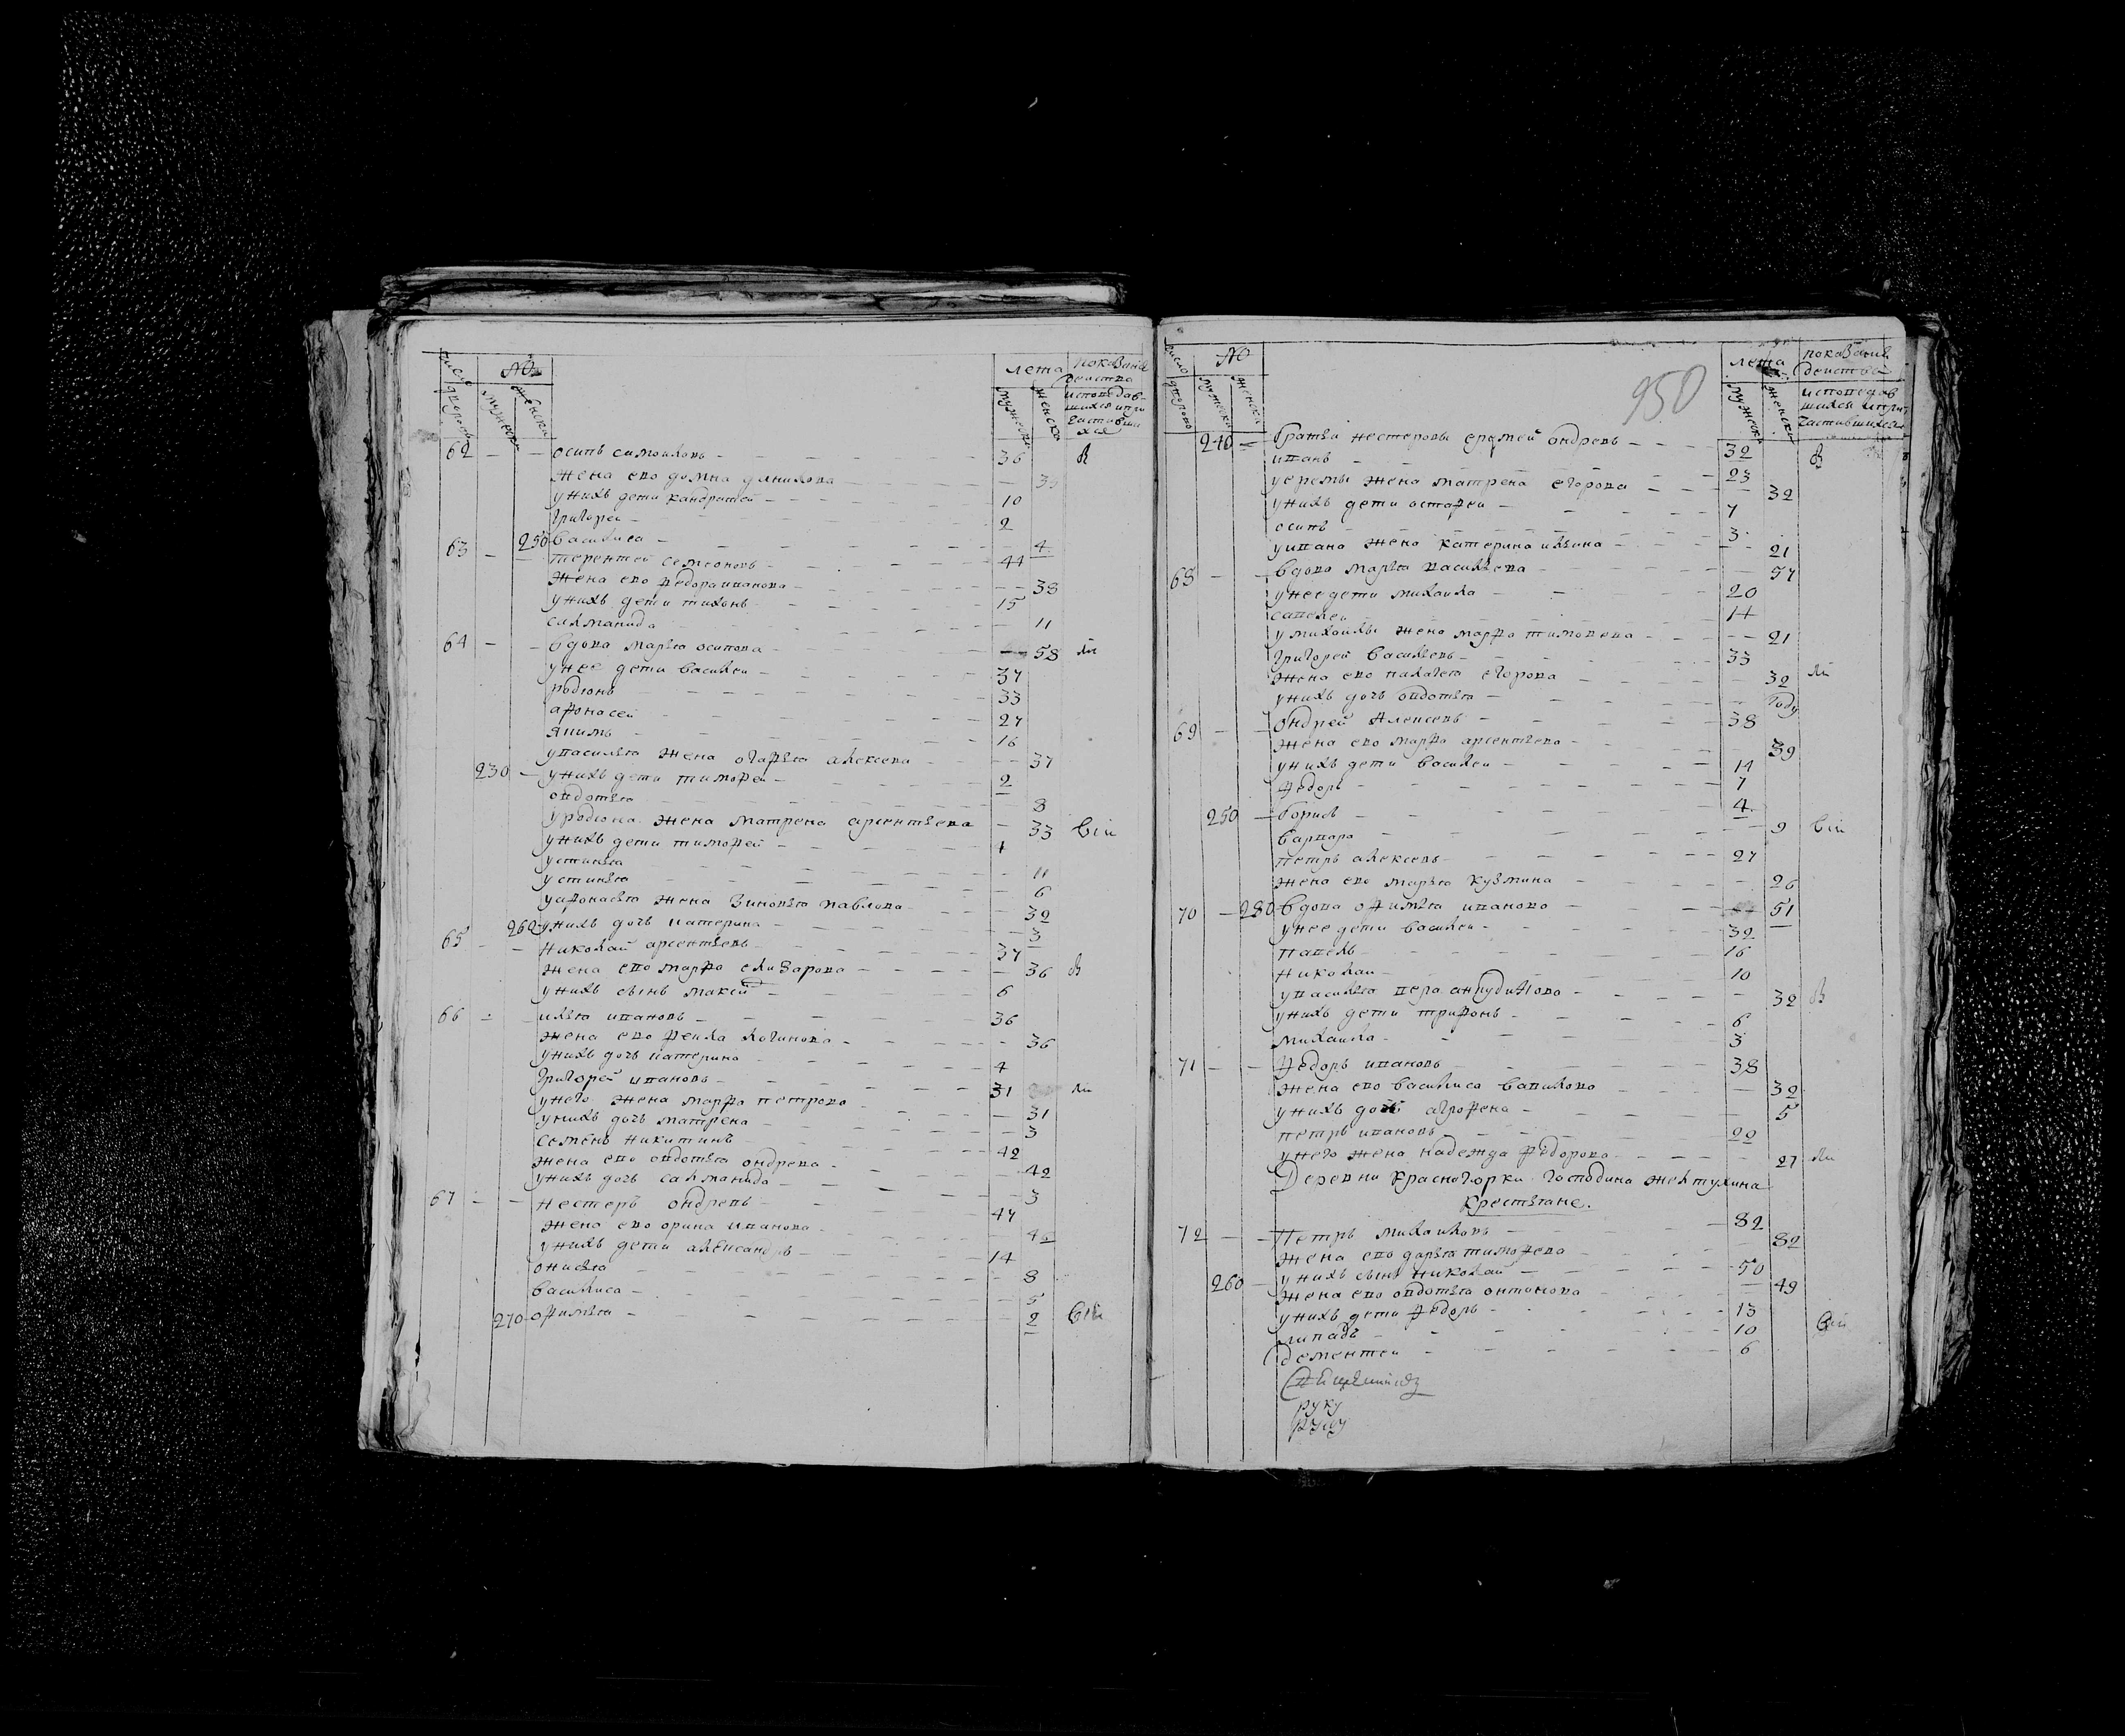 число дворовъ № мужеска женска лета мужеска женска показание действа исповедавшихся и причастившихся
62 — — осипъ самойловъ — 36
жена ево домна данилова — 35
у нихъ дети кандратей — 10
григорей — 2
250 василиса — 4
63 — — терентей семеоновъ — 44
жена ево федора иванова — 38
у нихъ дети тихонъ — 15
саламанида — 11
64 — — вдова марья осипова — 58
у нее дети василей — 37
родионъ — 33
афонасей — 27
якимъ — 16
у василья жена огафья алексеева — 37
230 — у нихъ дети тимофей — 2
овдотья — 8
у родиона жена матрена арсентьева — 33
у нихъ дети тимофей — 4
устинья — 11
устинья — 6
у афонасья жена зиновья павлова — 32
260 у нихъ дочь катерина — 3
65 — — николай арсентьевъ — 37
жена ево марфа елизарова — 36
у нихъ сынъ макей — 6
66 — илья ивановъ — 36
жена ево фекла логинова — 36
у нихъ дочь катерина — 4
григорей ивановъ — 31
у него жена марфа петрова — 31
у нихъ дочь матрена — 3
семенъ никитинъ — 42
жена ево овдотья ондреева — 42
у нихъ дочь саламанида — 3
67 — — нестеръ ондревъ — 47
жена ево орина иванова — 46
у нихъ дети александръ — 14
онисья — 8
василиса — 5
270 офимья — 2
950
число дворовъ № мужеска женска лета мужеска женска показание действа исповедавшихся и причастившихся
240 — братья нестеровы еремей ондревъ — 32
иванъ — 23
у еремы жена матрена егорова — 32
у нихъ дети остафей — 7
осипъ — 3
у ивана жена катерина ильина — 21
68 — — вдова марья васильева — 57
у нее дети михаила — 20
савелей — 14
у михаилы жена марфа тимофева — 21
григорей васильевъ — 33
жена ево палагея егорова — 32
у нихъ дочь овдотья — году
69 — — ондрей алексевъ — 38
жена ево марфа арсентьева — 39
у нихъ дети василей — 14
федоръ — 7
250 — борисъ — 4
варвара — 9
петръ алексевъ — 27
жена ево марья кузмина — 26
70 — 280 вдова офимья иванова — 51
у нее дети василей — 32
павелъ — 16
николай — 10
у василья вера анкудинова — 32
у нихъ дети трифонъ — 6
михаила — 3
71 — — федоръ ивановъ — 38
жена ево василиса вавилова — 32
у нихъ дочь аграфена — 5
петръ ивановъ — 22
у него жена надежда федорова — 27
Деревни красногорки господина желтухина
крестьяне.
72 — — петръ михайловъ — 82
жена ево дарья тимофева — 82
260 — у нихъ сынъ николай — 50
жена ево овдотья онтонова — 49
у нихъ дети федоръ — 13
липатъ — 10
дементей — 6
руку
руку